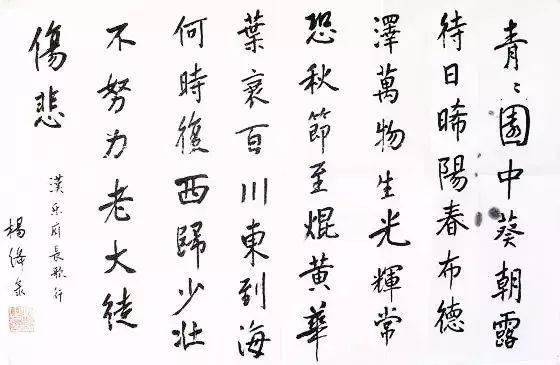 青々園中葵朝露
待日晞陽春布德
澤萬物生光輝常
恐秋節至焜黃華
葉衰百川東到海
何時復西歸少壯
不努力老大徒
傷悲
漢乐府長歌行
楊絳录